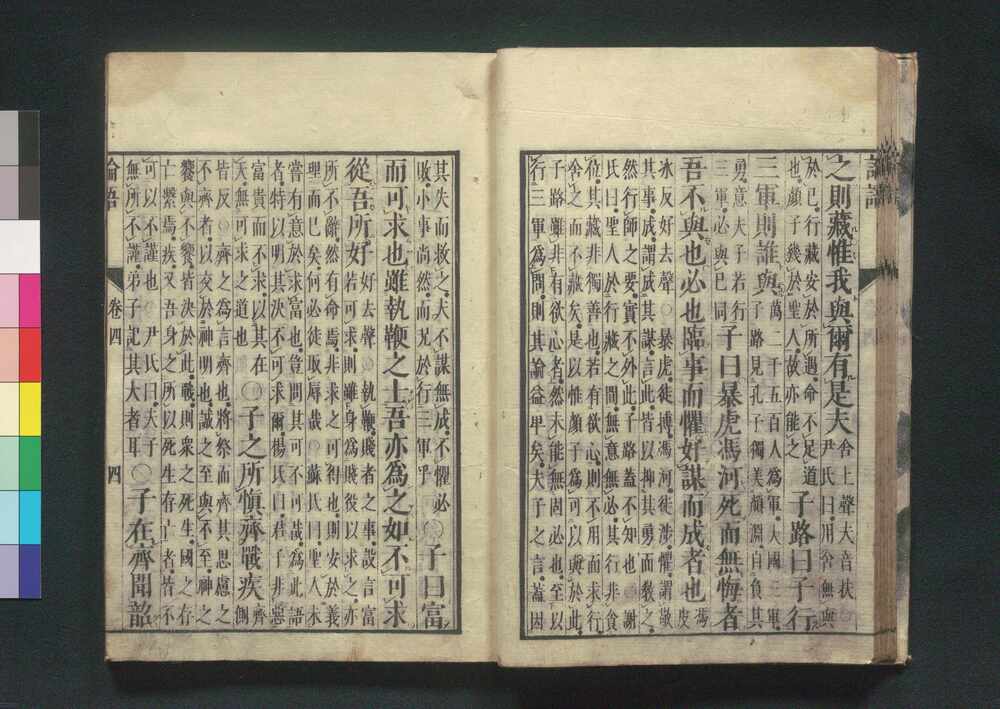 論語
之則藏惟我與爾有是夫
舍上聲夫音扶○
尹氏曰用舍無與
於己行藏安於所遇命不足道
也顏子幾於聖人故亦能之
子路曰子行
三軍則誰與
萬二千五百人爲軍大國三軍
子路見孔子獨美顏淵自負其
勇意夫子若行
三軍必與己同
子曰暴虎馮河死而無悔者
吾不與也必也臨事而懼好謀而成者也
馮
皮
冰反好去聲○暴虎徒搏馮河徒涉懼謂敬
其事成謂成其謀言此皆以抑其勇而教之
然行師之要實不外此子路蓋不知也○謝
氏曰聖人於行藏之間無意無必其行非貪
位其藏非獨善也若有欲心則不用而求行
舍之而不藏矣是以惟顏子爲可以與於此
子路雖非有欲心者然未能無固必也至以
行三軍爲問則其論益卑矣夫子之言蓋因
其失而救之夫不謀無成不懼必
敗小事尚然而况於行三軍乎
○子曰富
而可求也雖執鞭之士吾亦爲之如不可求
從吾所好
好去聲○執鞭賤者之事設言富
若可求則雖身爲賤役以求之亦
所不辭然有命焉非求之可得也則安於義
理而已矣何必徒取辱哉○蘇氏曰聖人未
嘗有意於求富也豈問其可不可哉爲此語
者特以明其決不可求爾楊氏曰君子非惡
富貴而不求以其在
天無可求之道也
○子之所慎齊戰疾
齊
側
皆反○齊之爲言齊也將祭而齊其思慮之
不齊者以交於神明也誠之至與不至神之
饗與不饗皆決於此戰則衆之死生國之存
亡繫焉疾又吾身之所以死生存亡者皆不
可以不謹也○尹氏曰夫子
無所不謹弟子記其大者耳
○子在齊聞韶
論語 卷四 四